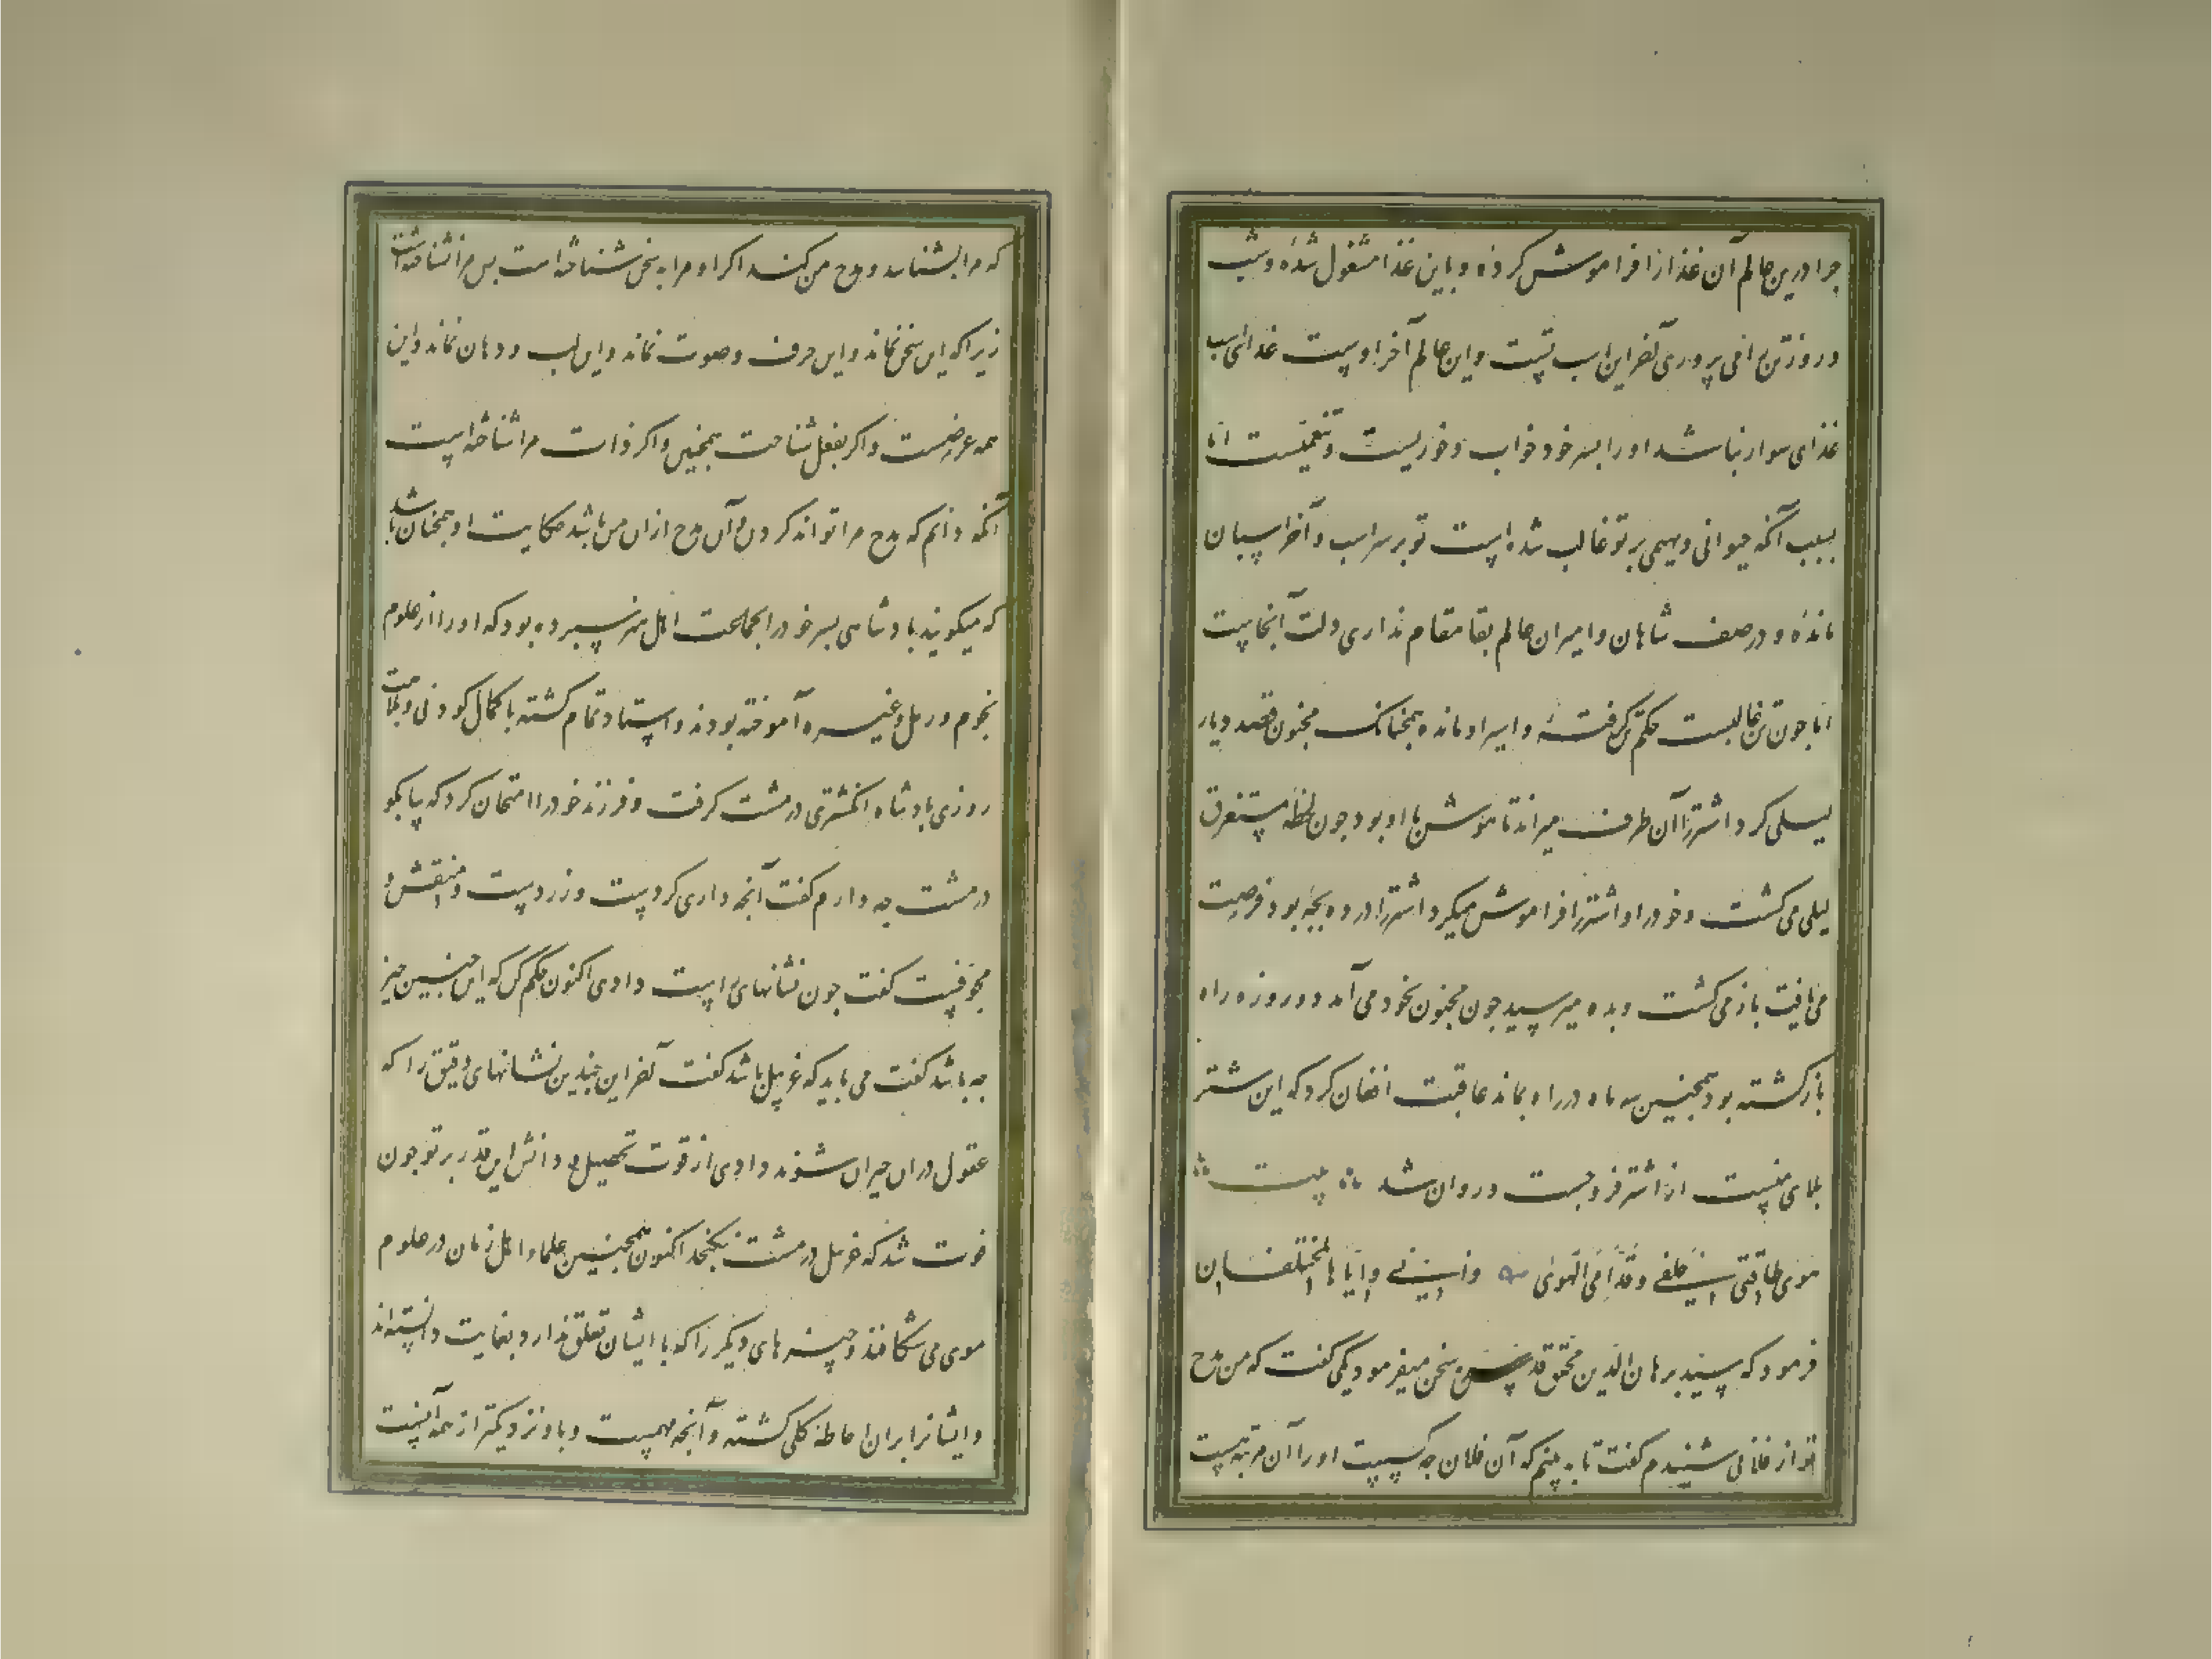 چرا درین عالم آن غذا را فراموش کرده و باین غذا مشغول شدهٔ و شب
و روز تن را می پروری آخر این تن اسب تست و این عالم آخر اوست غذای اسب
غذای سوار نباشد او را بسر خود خواب و خوریست و تنعمیست اما
بسبب آنکه حیوانی و بهیمی بر تو غالب شده است تو بر سر اسب و آخر اسبان
ماندهٔ و در صف شاهان و امیران عالم بقا مقام نداری دلت آنجاست
اما چون تن غالبست حکم تن گرفتهٔ و اسیر او ماندهٔ همچنانک مجنون قصد دیار
لیلی کرد اشتر را آن طرف میراند تا هوش با او بود چون لحظهٔ مستغرق
لیلی می گشت و خود را و اشتر را فراموش میکرد اشتر را در ده بچهٔ بود فرصت
می یافت باز می گشت و بده میرسید چون مجنون بخود می آمد دو روزه راه
باز گشته بود همچنین سه ماه در راه بماند عاقبت افغان کرد که این شتر
بلای منست از اشتر فرو جست و روان شد بیت
هوی ناقتی خلفی و قدامی الهوی و انی و ایاها لمختلفان
فرمود که سید برهان الدین محقق قدس سره سخن میفرمود یکی گفت که من مدح
تو از فلانی شنیدم گفت تا به بینم که آن فلان چه کسیست او را آن مرتبه هست
که مرا بشناسد و مدح من کند اگر او مرا به سخن شناخته است پس مرا نشناخته است
زیرا که این سخن نماند و این حرف و صوت نماند و این لب و دهان نماند و این
همه عرضست و اگر بفعل شناخت همچنین و اگر ذات مرا شناخته است
آنگه دانم که مدح مرا تواند کردن و آن مدح از آن من باشد حکایت او همچنان باشد
که میگویند پادشاهی پسر خود را بجماعت اهل هنر سپرده بود که او را از علوم
نجوم و رمل و غیره آموخته بودند و استاد تمام گشته با کمال کودنی و بلادت
روزی پادشاه انگشتری در مشت گرفت و فرزند خود را امتحان کرد که بیا بگو
در مشت چه دارم گفت آنچه داری گردست و زردست و منقش و
مجوفست گفت چون نشانهای راست دادی اکنون حکم کن که این چنین چیز
چه باشد گفت می باید که غربیل باشد گفت آخر این چندین نشانهای دقیق را که
عقول در آن حیران شوند دادی از قوت تحصیل و دانش این قدر بر تو چون
فوت شد که غربیل در مشت نگنجد اکنون همچنین علماء اهل زمان در علوم
موی می شکافند و چیزهای دیگر را که بایشان تعلق ندارد بغایت دانسته اند
و ایشان را بر آن احاطهٔ کلی گشته و آنچه مهمست و باو نزدیکتر از همه آنست